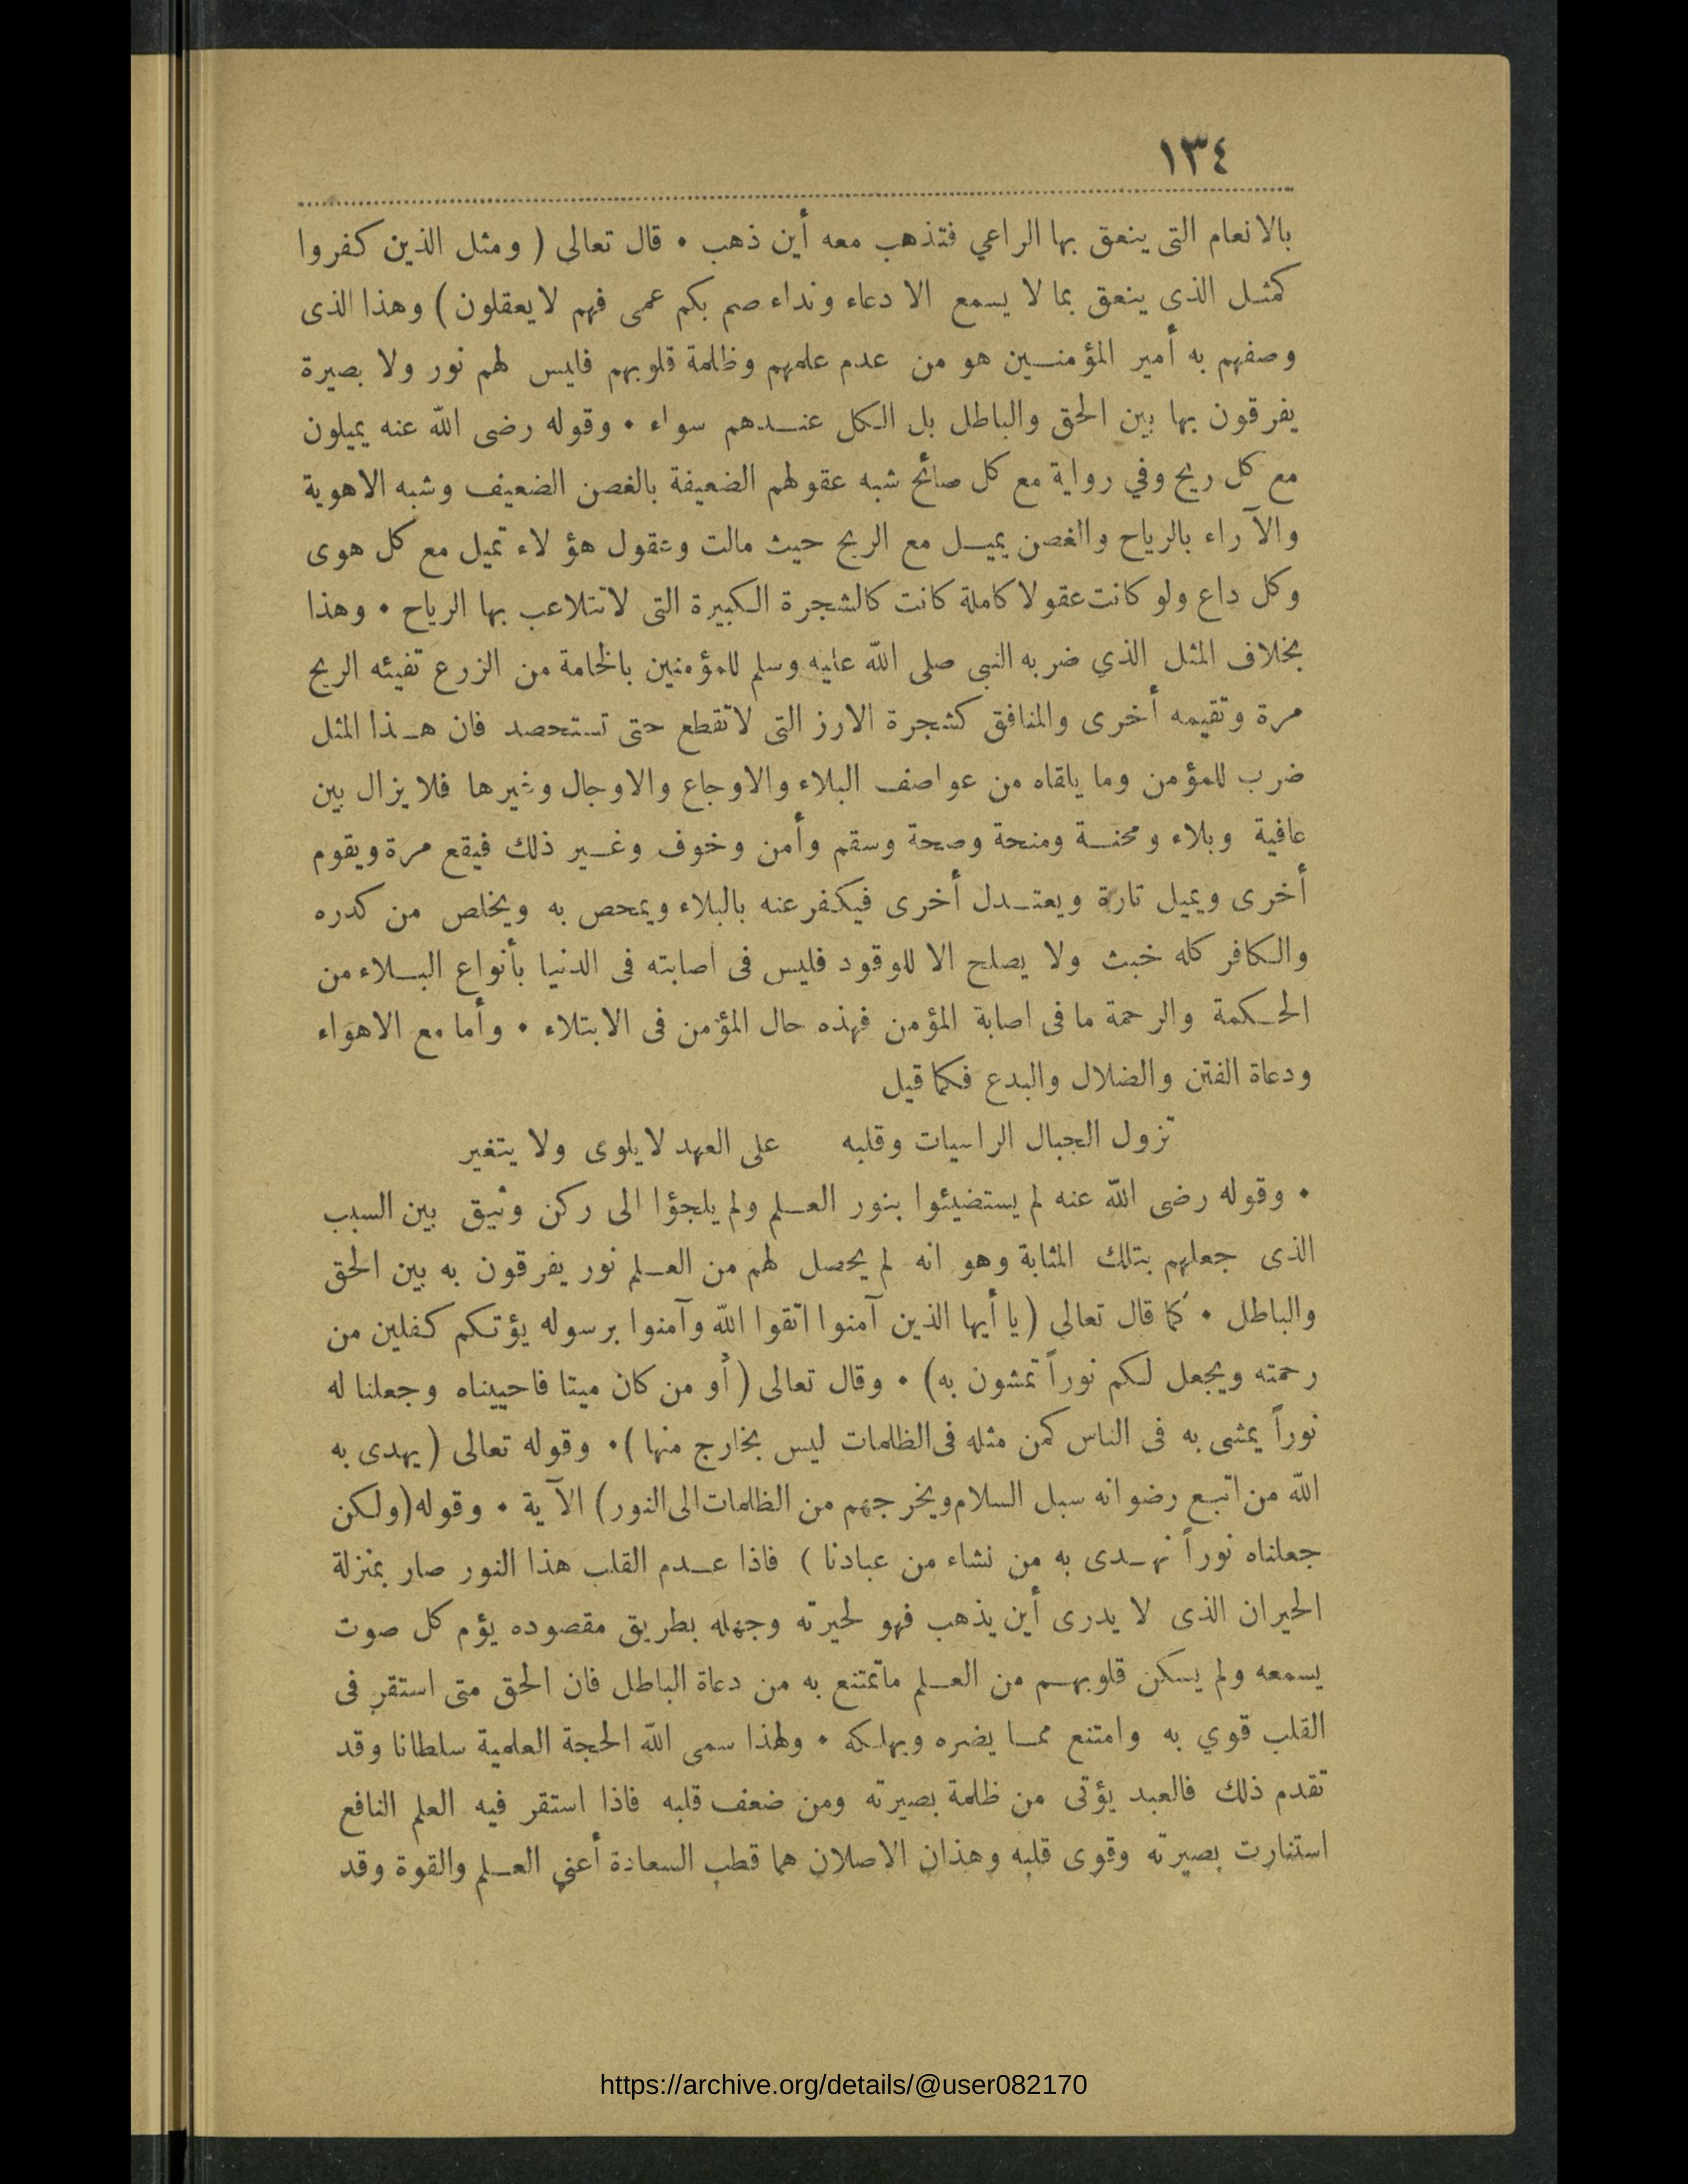 ١٣٤
بالانعام التى ينعق بها الراعي فتذهب معه أين ذهب • قال تعالى ( ومثل الذين كفروا
كمثل الذى ينعق بما لا يسمع الا دعاء ونداء صم بكم عمى فهم لا يعقلون ) وهذا الذى
وصفهم به أمير المؤمنين هو من عدم علمهم وظلمة قلوبهم فليس لهم نور ولا بصيرة
يفرقون بها بين الحق والباطل بل الكل عندهم سواء • وقوله رضى الله عنه يميلون
مع كل ريح وفي رواية مع كل صائح شبه عقولهم الضعيفة بالغصن الضعيف وشبه الاهوية
والآراء بالرياح والغصن يميل مع الريح حيث مالت وعقول هؤلاء تميل مع كل هوى
وكل داع ولو كانت عقولا كاملة كانت كالشجرة الكبيرة التى لا تتلاعب بها الرياح • وهذا
بخلاف المثل الذي ضربه النبى صلى الله عليه وسلم للمؤمنين بالخامة من الزرع تفيئه الريح
مرة وتقيمه أخرى والمنافق كشجرة الارز التى لا تقطع حتى تستحصد فان هذا المثل
ضرب للمؤمن وما يلقاه من عواصف البلاء والاوجاع والاوجال وغيرها فلا يزال بين
عافية وبلاء ومحنة ومنحة وصحة وسقم وأمن وخوف وغير ذلك فيقع مرة ويقوم
أخرى ويميل تارة ويعتدل أخرى فيكفر عنه بالبلاء ويمحص به ويخلص من كدره
والكافر كله خبث ولا يصلح الا للوقود فليس فى اصابته فى الدنيا بأنواع البلاء من
الحكمة والرحمة ما فى اصابة المؤمن فهذه حال المؤمن فى الابتلاء • وأما مع الاهواء
ودعاة الفتن والضلال والبدع فكما قيل
تزول الجبال الراسيات وقلبه على العهد لا يلوى ولا يتغير
• وقوله رضى الله عنه لم يستضيئوا بنور العلم ولم يلجؤا الى ركن وثيق بين السبب
الذى جعلهم بتلك المثابة وهو انه لم يحصل لهم من العلم نور يفرقون به بين الحق
والباطل • كما قال تعالى ( يا أيها الذين آمنوا اتقوا الله وآمنوا برسوله يؤتكم كفلين من
رحمته ويجعل لكم نوراً تمشون به ) • وقال تعالى ( أو من كان ميتا فاحييناه وجعلنا له
نوراً يمشى به فى الناس كمن مثله فى الظلمات ليس بخارج منها ) • وقوله تعالى ( يهدى به
الله من اتبع رضوانه سبل السلام ويخرجهم من الظلمات الى النور ) الآية • وقوله ( ولكن
جعلناه نوراً نهدى به من نشاء من عبادنا ) فاذا عدم القلب هذا النور صار بمنزلة
الحيران الذى لا يدرى أين يذهب فهو لحيرته وجهله بطريق مقصوده يؤم كل صوت
يسمعه ولم يسكن قلوبهم من العلم ما تمتنع به من دعاة الباطل فان الحق متى استقر فى
القلب قوي به وامتنع مما يضره ويهلكه • ولهذا سمى الله الحجة العلمية سلطانا وقد
تقدم ذلك فالعبد يؤتى من ظلمة بصيرته ومن ضعف قلبه فاذا استقر فيه العلم النافع
استنارت بصيرته وقوى قلبه وهذان الاصلان هما قطب السعادة أعني العلم والقوة وقد
https://archive.org/details/@user082170